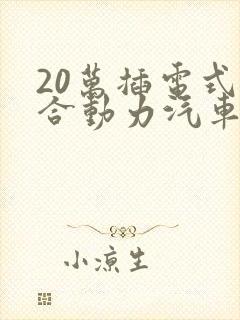 20萬插電式
合動力汽車
小涼生